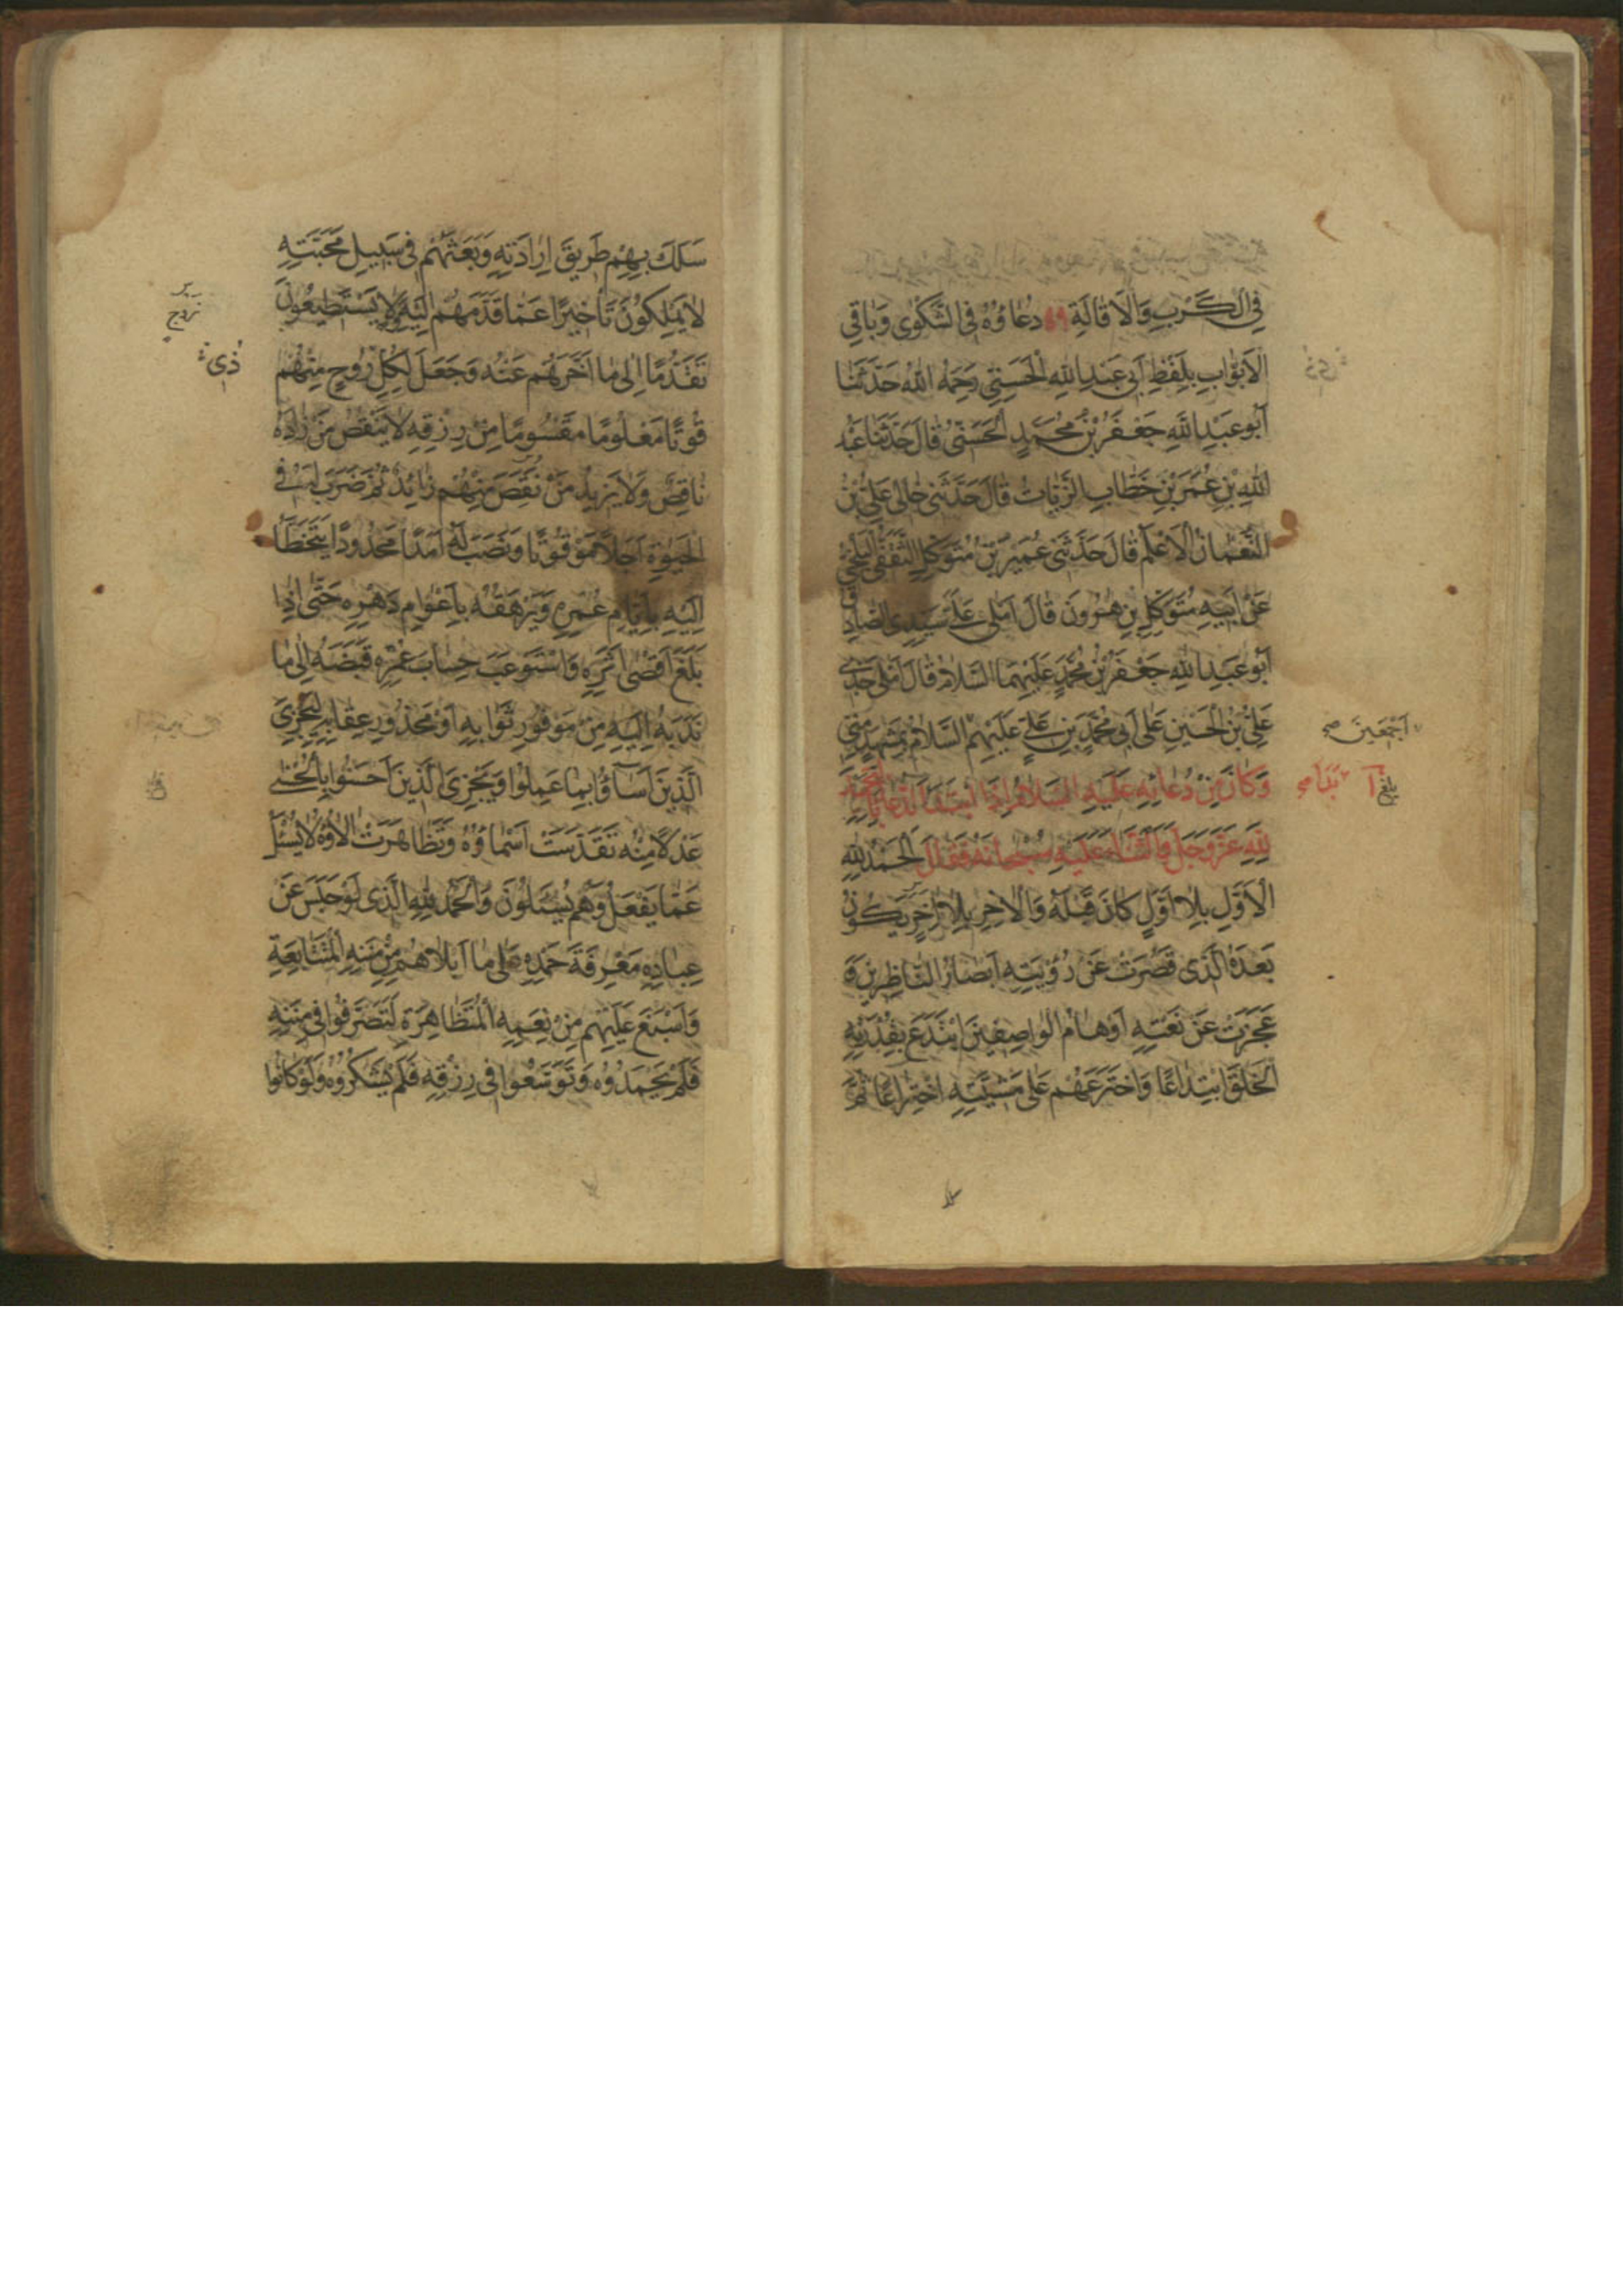 فِي الْكَرْبِ وَالْاِقَالَةِ ٦٩ دُعَاؤُهُ فِي الشَّكْوٰى وَبَاقِي
الْاَبْوَابِ بِلَفْظِ اَبِي عَبْدِاللهِ الْحَسَنِيِّ رَحِمَهُ اللهُ حَدَّثَنَا
اَبُو عَبْدِاللهِ جَعْفَرُ بْنُ مُحَمَّدٍ الْحَسَنِيُّ قَالَ حَدَّثَنَا عَبْدُ
اللهِ بْنِ عُمَرَ بْنِ خَطَّابِ الزَّيَّاتُ قَالَ حَدَّثَنِي خَالِي عَلِيُّ بْنُ
النُّعْمَانِ الْاَعْلَمُ قَالَ حَدَّثَنِي عُمَيْرُ بْنُ مُتَوَكِّلٍ الثَّقَفِيُّ الْبَلْخِيُّ
عَنْ اَبِيهِ مُتَوَكِّلِ بْنِ هٰرُونَ قَالَ اَمْلٰى عَلَيَّ سَيِّدِي الصَّادِقُ
اَبُو عَبْدِاللهِ جَعْفَرُ بْنُ مُحَمَّدٍ عَلَيْهِمَا السَّلَامُ قَالَ اَمْلٰى جَدِّي
عَلِيُّ بْنُ الْحُسَيْنِ عَلٰى اَبِي مُحَمَّدِ بْنِ عَلِيٍّ عَلَيْهِمُ السَّلَامُ بِمَشْهَدٍ مِنِّي
اَجْمَعِينَ صح
وَكَانَ مِنْ دُعَائِهِ عَلَيْهِ السَّلَامُ اِذَا ابْتَدَاَ بِالدُّعَاءِ بِالتَّحْمِيدِ
بلغ
لِلّٰهِ عَزَّ وَجَلَّ وَالثَّنَاءِ عَلَيْهِ سُبْحَانَهُ فَقَالَ اَلْحَمْدُ لِلّٰهِ
الْاَوَّلِ بِلَا اَوَّلٍ كَانَ قَبْلَهُ وَالْاٰخِرِ بِلَا اٰخِرٍ يَكُونُ
بَعْدَهُ الَّذِي قَصُرَتْ عَنْ رُؤْيَتِهِ اَبْصَارُ النَّاظِرِينَ وَ
عَجَزَتْ عَنْ نَعْتِهِ اَوْهَامُ الْوَاصِفِينَ ابْتَدَعَ بِقُدْرَتِهِ
الْخَلْقَ ابْتِدَاعًا وَاخْتَرَعَهُمْ عَلٰى مَشِيَّتِهِ اخْتِرَاعًا ثُمَّ
سَلَكَ بِهِمْ طَرِيقَ اِرَادَتِهِ وَبَعَثَهُمْ فِي سَبِيلِ مَحَبَّتِهِ
لَا يَمْلِكُونَ تَاْخِيرًا عَمَّا قَدَّمَهُمْ اِلَيْهِ وَلَا يَسْتَطِيعُونَ
تَقَدُّمًا اِلٰى مَا اَخَّرَهُمْ عَنْهُ وَجَعَلَ لِكُلِّ رُوحٍ مِنْهُمْ
قُوتًا مَعْلُومًا مَقْسُومًا مِنْ رِزْقِهِ لَا يَنْقُصُ مَنْ زَادَهُ
نَاقِصٌ وَلَا يَزِيدُ مَنْ نَقَصَ مِنْهُمْ زَائِدٌ ثُمَّ ضَرَبَ لَهُ فِي
الْحَيٰوةِ اَجَلًا مَوْقُوتًا وَنَصَبَ لَهُ اَمَدًا مَحْدُودًا يَتَخَطَّاُ
اِلَيْهِ بِاَيَّامِ عُمُرِهِ وَيَرْهَقُهُ بِاَعْوَامِ دَهْرِهِ حَتّٰى اِذَا
بَلَغَ اَقْصٰى اَثَرِهِ وَاسْتَوْعَبَ حِسَابَ عُمُرِهِ قَبَضَهُ اِلٰى مَا
نَدَبَهُ اِلَيْهِ مِنْ مَوْفُورِ ثَوَابِهِ اَوْ مَحْذُورِ عِقَابِهِ لِيَجْزِيَ
الَّذِينَ اَسَآؤُا بِمَا عَمِلُوا وَيَجْزِيَ الَّذِينَ اَحْسَنُوا بِالْحُسْنٰى
عَدْلًا مِنْهُ تَقَدَّسَتْ اَسْمَاؤُهُ وَتَظَاهَرَتْ اٰلَاؤُهُ لَا يُسْئَلُ
عَمَّا يَفْعَلُ وَهُمْ يُسْئَلُونَ وَالْحَمْدُ لِلّٰهِ الَّذِي لَوْ حَبَسَ عَنْ
عِبَادِهِ مَعْرِفَةَ حَمْدِهِ عَلٰى مَا اَبْلَاهُمْ مِنْ مِنَنِهِ الْمُتَتَابِعَةِ
وَاَسْبَغَ عَلَيْهِمْ مِنْ نِعَمِهِ الْمُتَظَاهِرَةِ لَتَصَرَّفُوا فِي مِنَنِهِ
فَلَمْ يَحْمَدُوهُ وَتَوَسَّعُوا فِي رِزْقِهِ فَلَمْ يَشْكُرُوهُ وَلَوْ كَانُوا